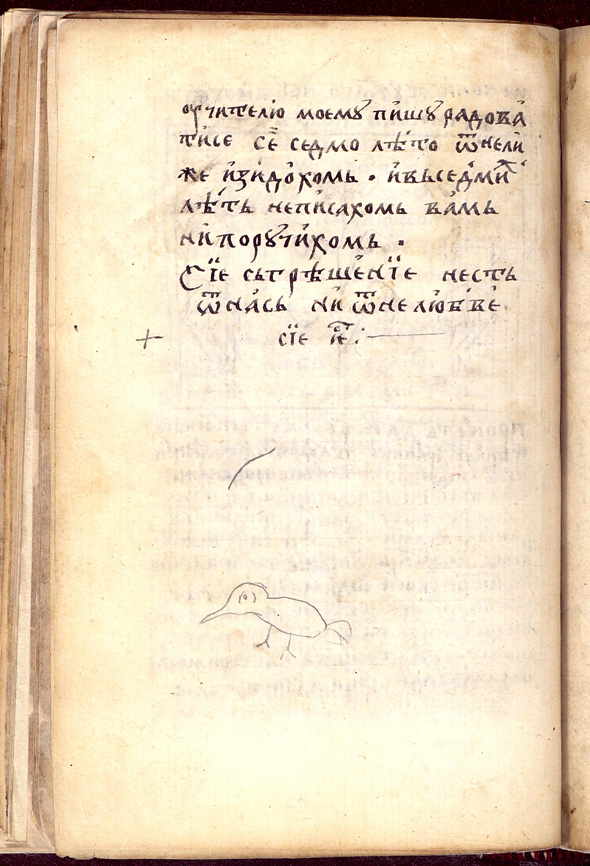 оучителю моемꙋ пишꙋ радова
тисе се седмо лѣто ѿнели
же изидохомь · ивьседми
лѣть неписахомь вамь
нипорꙋчихомь ·
Сїе сьгрѣшенїе несть
ѿнась ни ѿнелюбве
сїе